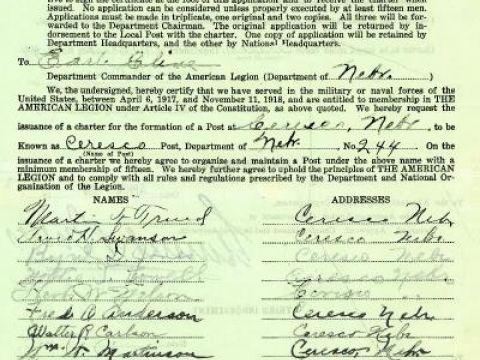 to sign the certificate at the foot of this application and to receive the charter when
issued. No application can be considered unless properly executed by at least fifteen men.
Applications must be made in triplicate, one original and two copies. All three will be for-
warded to the Department Chairman. The original application will be returned by in-
dorsement to the Local Post with the charter. One copy of application will be retained by
Department Headquarters, and the other by National Headquarters.
To Earl Cline
Department Commander of the American Legion (Department of Nebr. )
We, the undersigned, hereby certify that we have served in the military or naval forces of the
United States, between April 6, 1917, and November 11, 1918, and are entitled to membership in THE
AMERICAN LEGION under Article IV of the Constitution, as above quoted. We hereby request
issuance of a charter for the formation of a Post at Ceresco, Nebr., to be
Known as Ceresco Post, Department of Nebr. No 244 On the
(Name of Post)
issuance of a charter we hereby agree to organize and maintain a Post under the above name with a
minimum membership of fifteen. We hereby further agree to uphold the principles of THE AMERICAN
LEGION and to comply with all rules and regulations prescribed by the Department and National Or-
ganization of the Legion.
NAMES ADDRESSES
Martin Ceresco Nebr
Swanson Ceresco Nebr
Ceresco Nebr
Ceresco Nebr
Ceresco
Fred A Anderson Ceresco Nebr.
Walter R Carlson Ceresco Nebr
Wm. Martinson Ceresco, Nebr